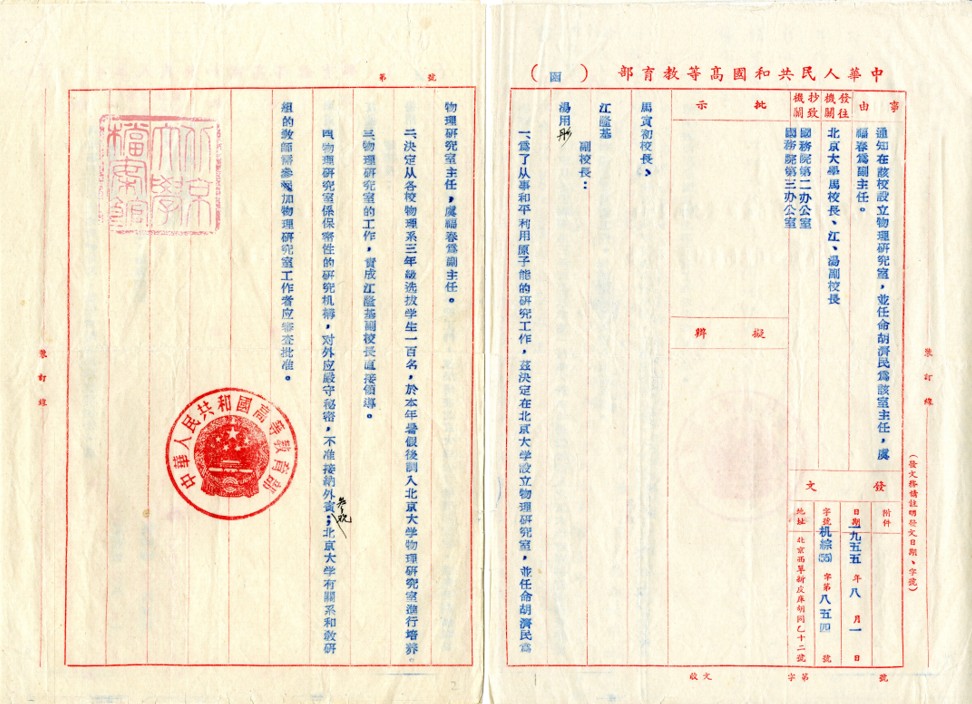 中華人民共和國高等教育部
（函）
事由
通知在該校設立物理研究室，並任命胡濟民爲該室主任，虞
福春爲副主任。
發往機關
北京大學馬校長、江、湯副校長
抄致機關
國務院第二办公室
國務院第三办公室
發文
附件
日期 一九五五年八月一日
字號 机綜(55)字第八五四號
地址 北京西單新皮庫胡同乙十二號
批示
擬辦
馬寅初校長、
江隆基
副校長：
湯用彤
一、爲了从事和平利用原子能的研究工作，茲决定在北京大学設立物理研究室，並任命胡濟民爲
（發文務請註明發文日期、字號）
裝訂線
收文 字第 號
第 號
物理研究室主任，虞福春爲副主任。
二、决定从各校物理系三年級选拔学生一百名，於本年暑假後調入北京大学物理研究室進行培养。
三、物理研究室的工作，責成江隆基副校長直接領導。
四、物理研究室係保密性的研究机構，对外应嚴守秘密，不准接納外賓参观；北京大学有關系和教研
組的教師需参加物理研究室工作者应審查批准。
中華人民共和國高等教育部
北京大學檔案館
裝訂線
2